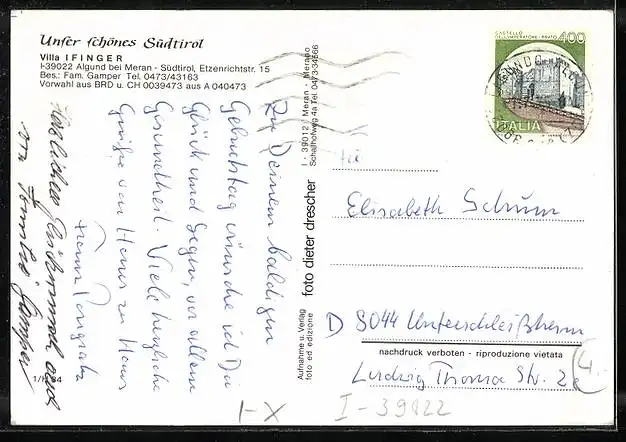 Unser schönes Südtirol
Villa IFINGER
I-39022 Algund bei Meran - Südtirol, Etzenrichtstr. 15
Bes.: Fam. Gamper Tel. 0473/43163
Vorwahl aus BRD u. CH 0039473 aus A 040473
Zu Deinem baldigen
Geburtstag wünsche ich Dir
Glück und Segen, vor allem
Gesundheit. Viele herzliche
Grüße von Haus zu Haus
Herzlichen Glückwunsch auch
von Familie Gamper
Aufnahme u. Verlag
foto ed edizione
foto dieter drescher
I - 39012 Meran - Merano
Schallhofweg 4a Tel. 0473-34566
CASTELLO
DELL'IMPERATORE - PRATO
400
ITALIA
Elisabeth Schum
D 8044 Unterschleißheim
nachdruck verboten - riproduzione vietata
Ludwig Thoma Str. 2
I-X
I-39022